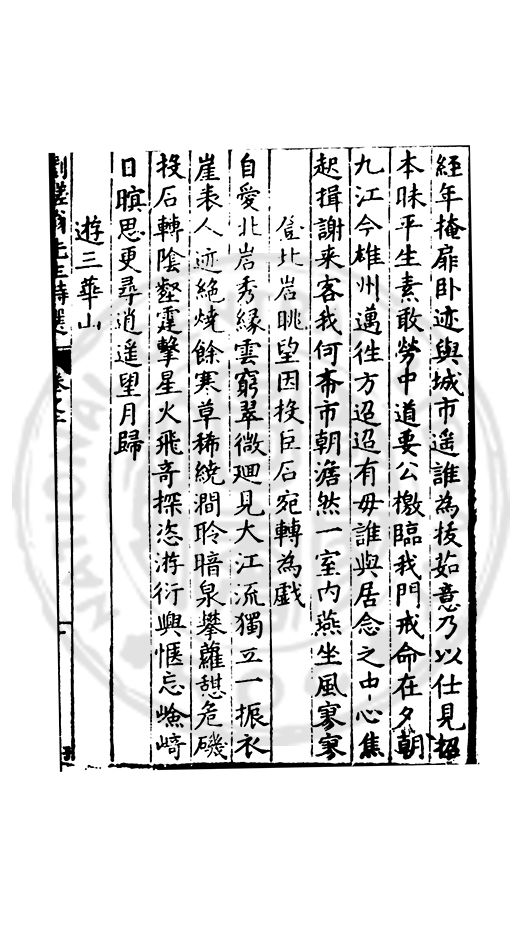 經年掩扉卧迹與城市遥誰為拔茹意乃以仕見招
本昧平生素敢勞中道要公檄臨我門戒命在夕朝
九江今雄州邁徃方迢迢有毋誰與居念之中心焦
起揖謝来客我何奔市朝澹然一室内燕坐風寥寥
登北岩眺望因投巨石宛轉為戯
自愛北岩秀緣雲窮翠微廻見大江流獨立一振衣
崖表人迹絶燒餘寒草稀繞澗聆暗泉攀蘿憇危磯
投石轉陰壑霆擊星火飛奇探恣游衍興愜忘嶮崎
日暝思更尋逍遥望月歸
遊三華山